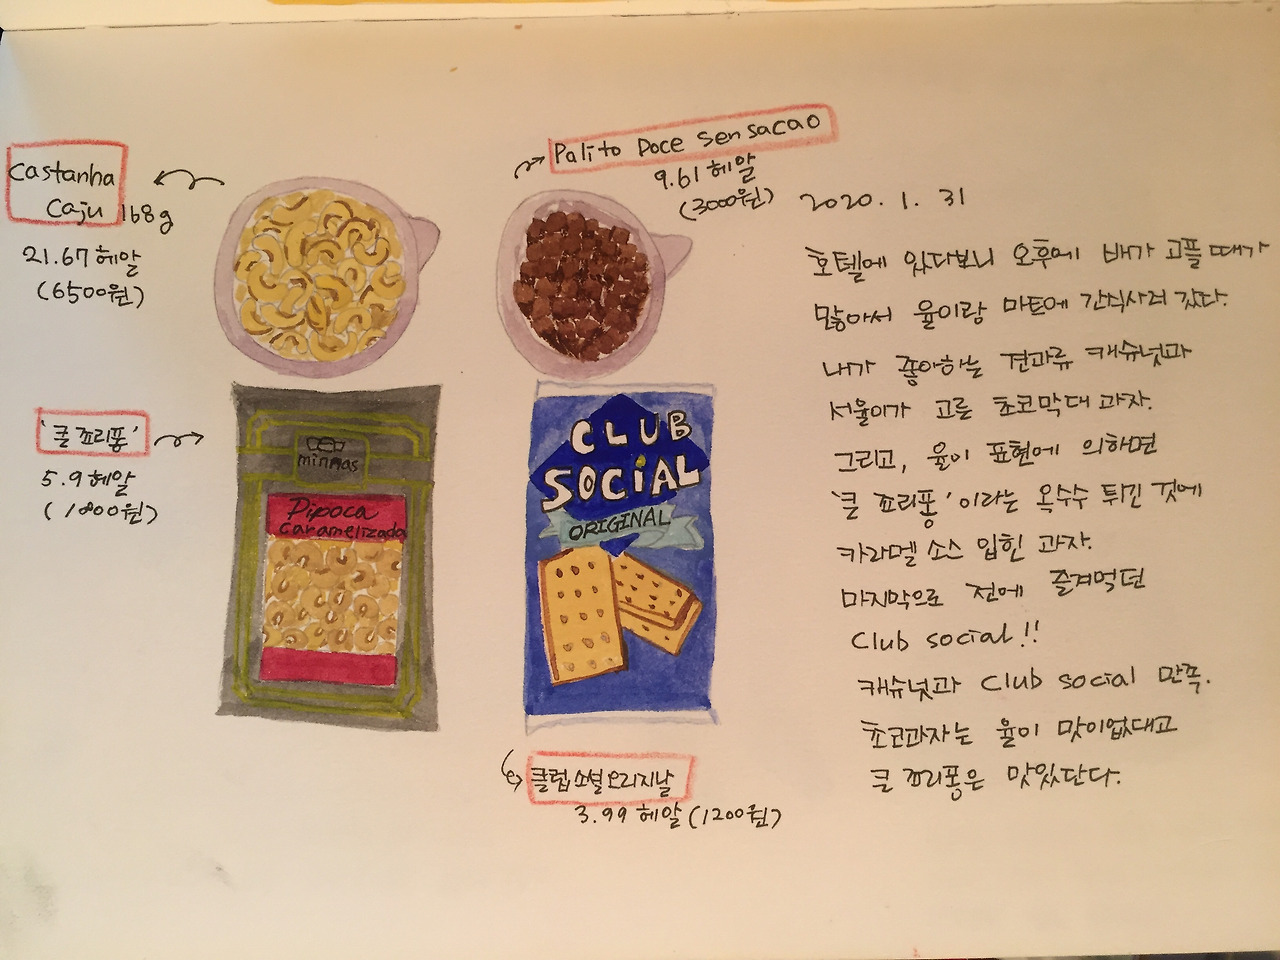 Castanha
Caju 168g
21.67헤알
(6500원)
Palito Doce Sensacao
9.61헤알
(3000원)
'큰 죠리퐁'
5.9헤알
(1800원)
minmas
Pipoca
caramelizada
CLUB
SOCIAL
ORIGINAL
클럽소셜오리지날
3.99헤알(1200원)
2020. 1. 31
호텔에 있다보니 오후에 배가 고플때가
많아서 율이랑 마트에 간식사러 갔다.
내가 좋아하는 견과류 캐슈넛과
서율이가 고른 초코막대 과자.
그리고, 율이 표현에 의하면
'큰 죠리퐁'이라는 옥수수 튀긴 것에
카라멜 소스 입힌 과자.
마지막으로 전에 즐겨먹던
Club social!!
캐슈넛과 Club social 만족.
초코과자는 율이 맛이없대고
큰 죠리퐁은 맛있단다.